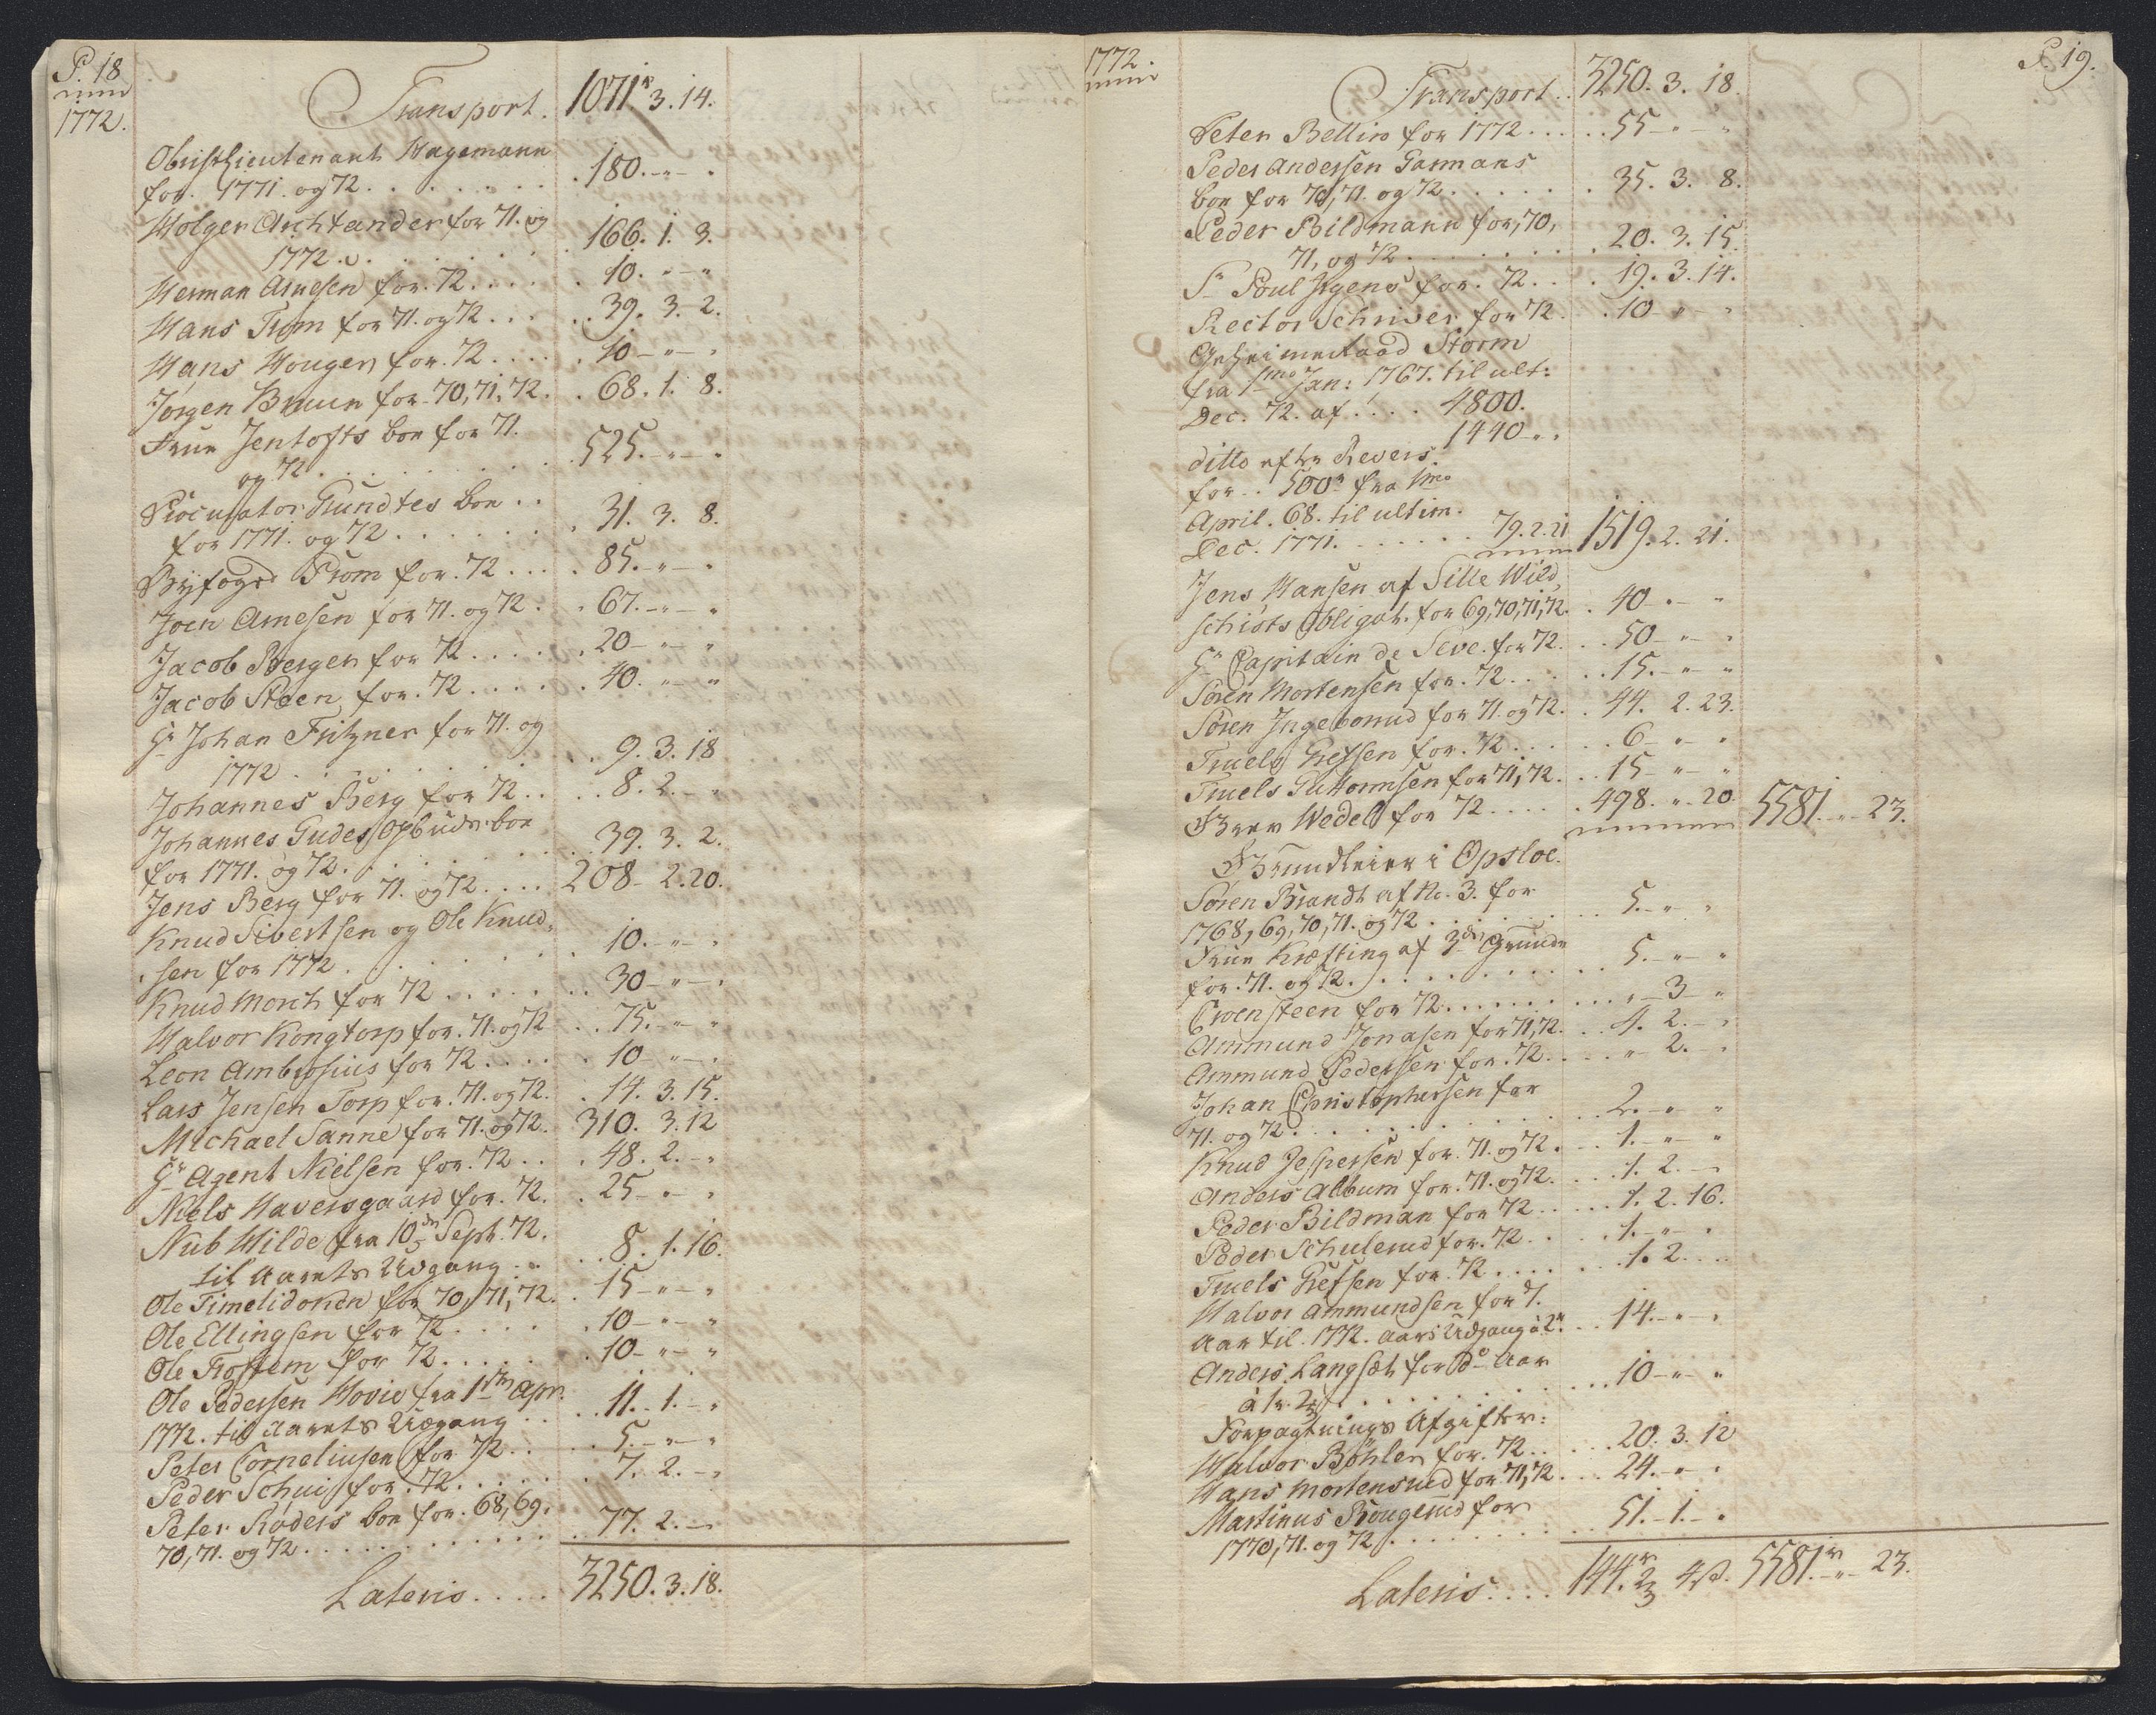 P. 18
1772.
Transport. 1071r 3. 14.
Obristlieutenant Hagemann
for. 1771. og 72. . . . . . . . 180. - " - "
Holger Achtander for 71. og
1772 . . . . . . . . 166. 1. 3.
Herman Arnesen for. 72. . . . . 10. " - "
Hans Trom for 71. og 72 . . . 39. 3. 2.
Hans Hougen for. 72 . . . . . 10 - " - "
Jørgen Bruun for. 70, 71, 72. . 68. 1. 8.
Frue Jentofts boe for 71.
og 72. . . . . . . . . 525. - " - "
Procurator Gundtes boe . .
for 1771. og 72 . . . . . . . 31. 3. 8.
Byfoged Prom for. 72 . . . . 85. - " - "
Joen Arnesen for 71. og 72 . . 67. - " - "
Jacob Berger for 72 . . . . . 20 - " - "
Jacob Steen for. 72 . . . . . 40. " - "
Hr Johan Fritzner for 71. og
1772 . . . . . . . . 9. 3. 18
Johannes Berg for 72. . . . 8. 2. - "
Johannes Gudes Opbuds boe
for 1771. og 72. . . . . . . . 39. 3. 2.
Jens Berg for 71. og 72 . . . . 208 - 2. 20.
Knud Sivertsen og Ole Knud-
sen for 1772 . . . . . . . 10. - " - "
Knud Morch for 72 . . . . . . 30 - " - "
Halvor Kongtorp for. 71. og 72 . . 75. - " - "
Leon Ambrosius for 72 . . . . . 10 - " - "
Lars Jensen Torp for. 71. og 72. . 14. 3. 15.
Michael Sanne for 71. og 72. 310. 3. 12
Hr Agent Nielsen for. 72 . . . 48. 2. - "
Niels Haversgaard for. 72. . 25 - " - "
Nub Wilde fra 10de Sept. 72.
til Aarets Udgang . . . . 8. 1. 16.
Ole Timelidonen for 70, 71, 72. . 15 - " - "
Ole Ellingsen for 72 . . . . . 10 - " - "
Ole Frostem for 72. . . . . . 10 - " - "
Ole Pedersen Hovie fra 1ste Apr.
1772. til Aarets Udgang . . . . 11. - 1. - "
Peter Corneliusen for 72 . . . . 5. - " - "
Peder Schuis for. 72. . . . . . 7. 2. - "
Peter Røders boe for. 68, 69,
70, 71. og 72 . . . . . . . . . . . . . 77. 2. - "
Lateris . . . . 3250. 3. 18.
1772.
P. 19.
Transport. . 3250. 3. 18.
Peter Bellin for 1772 . . . . . 55 - " - "
Peder Andersen Garmans
boe for 70, 71. og 72 . . . . . . . 35. 3. 8.
Peder Bildmann for, 70,
71, og 72 . . . . . . . . 20. 3. 15.
Sr Poul Irgens for. 72. . . 19. 3. 14.
Rector Schriver for 72. . 10 - " - "
Geheimeraad Storm
fra 1mo Jan: 1767. til ult:
Dec. 72. af . . . . 4800.
1440 - " "
ditto efter Revers
for . . 500r fra 1mo
April. 68. til ultim.
Dec. 1771. . . . . . . 79. 2. 21 1519. 2. 21.
Jens Hansen af Sille Wild
schiøts Obligat. for 69, 70, 71, 72. . 40 - " - "
Hr Capitain de Seve. for 72. . . 50 - " - "
Søren Mortensen for. 72. . . . . 15. - " - "
Søren Ingeborrud for 71. og 72. . 44. 2. 23.
Truels Grefsen for. 72 . . . . . . 6 - " - "
Truels Guttormsen for 71, 72. . . 15 - " - "
Frue Wedel for 72 . . . . . 498. " . 20. 5581. - " - 23.
Grundleier i Opsloe.
Søren Brandt af No. 3. for
1768, 69, 70, 71. og 72 . . . . . . . . 5. - " - "
Frue Kræfting af 3de Grunde
for. 71. og 72. . . . . . . . . . . 5. - " - "
Ewensteen for 72. . . . . . . . . . " - 3 - "
Ammund Jonasen for 71, 72. . . 4. 2. - "
Ammund Pedersen for. 72. . . . . " - 2. - "
Johan Christophersen for
71. og 72. . . . . . . . . . . 2. - " - "
Knud Jespersen for. 71. og 72 . . . 1. - " - "
Anders Album for. 71. og 72. . . . 1. 2. - "
Peder Bildman for 72 . . . . . 1. 2. 16.
Peder Schulerud for. 72. . . . . 1. - " - "
Truels Grefsen for. 72 . . . . . . . 1. 2. . . .
Halvor Ammundsen for 7.
Aar til. 1772. Aars Udgang à 2r. . 14. - " - "
Anders Langset for Do Aar
à 1r. 2 . . . . . . . . . . . 10 - " - "
Forpagtnings Afgifter:
Halvor Bøhler for. 72 . . . . 20. 3. 12
Hans Mortensrud for 71, 72 . . . 24. - " - "
Martinus Rougerud for
1770, 71. og 72 . . . . . . . . . . . 51. - 1. - "
Lateris . . . . 144r. 2 4ß. 5581r - " - 23.